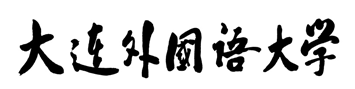 大连外國语大学